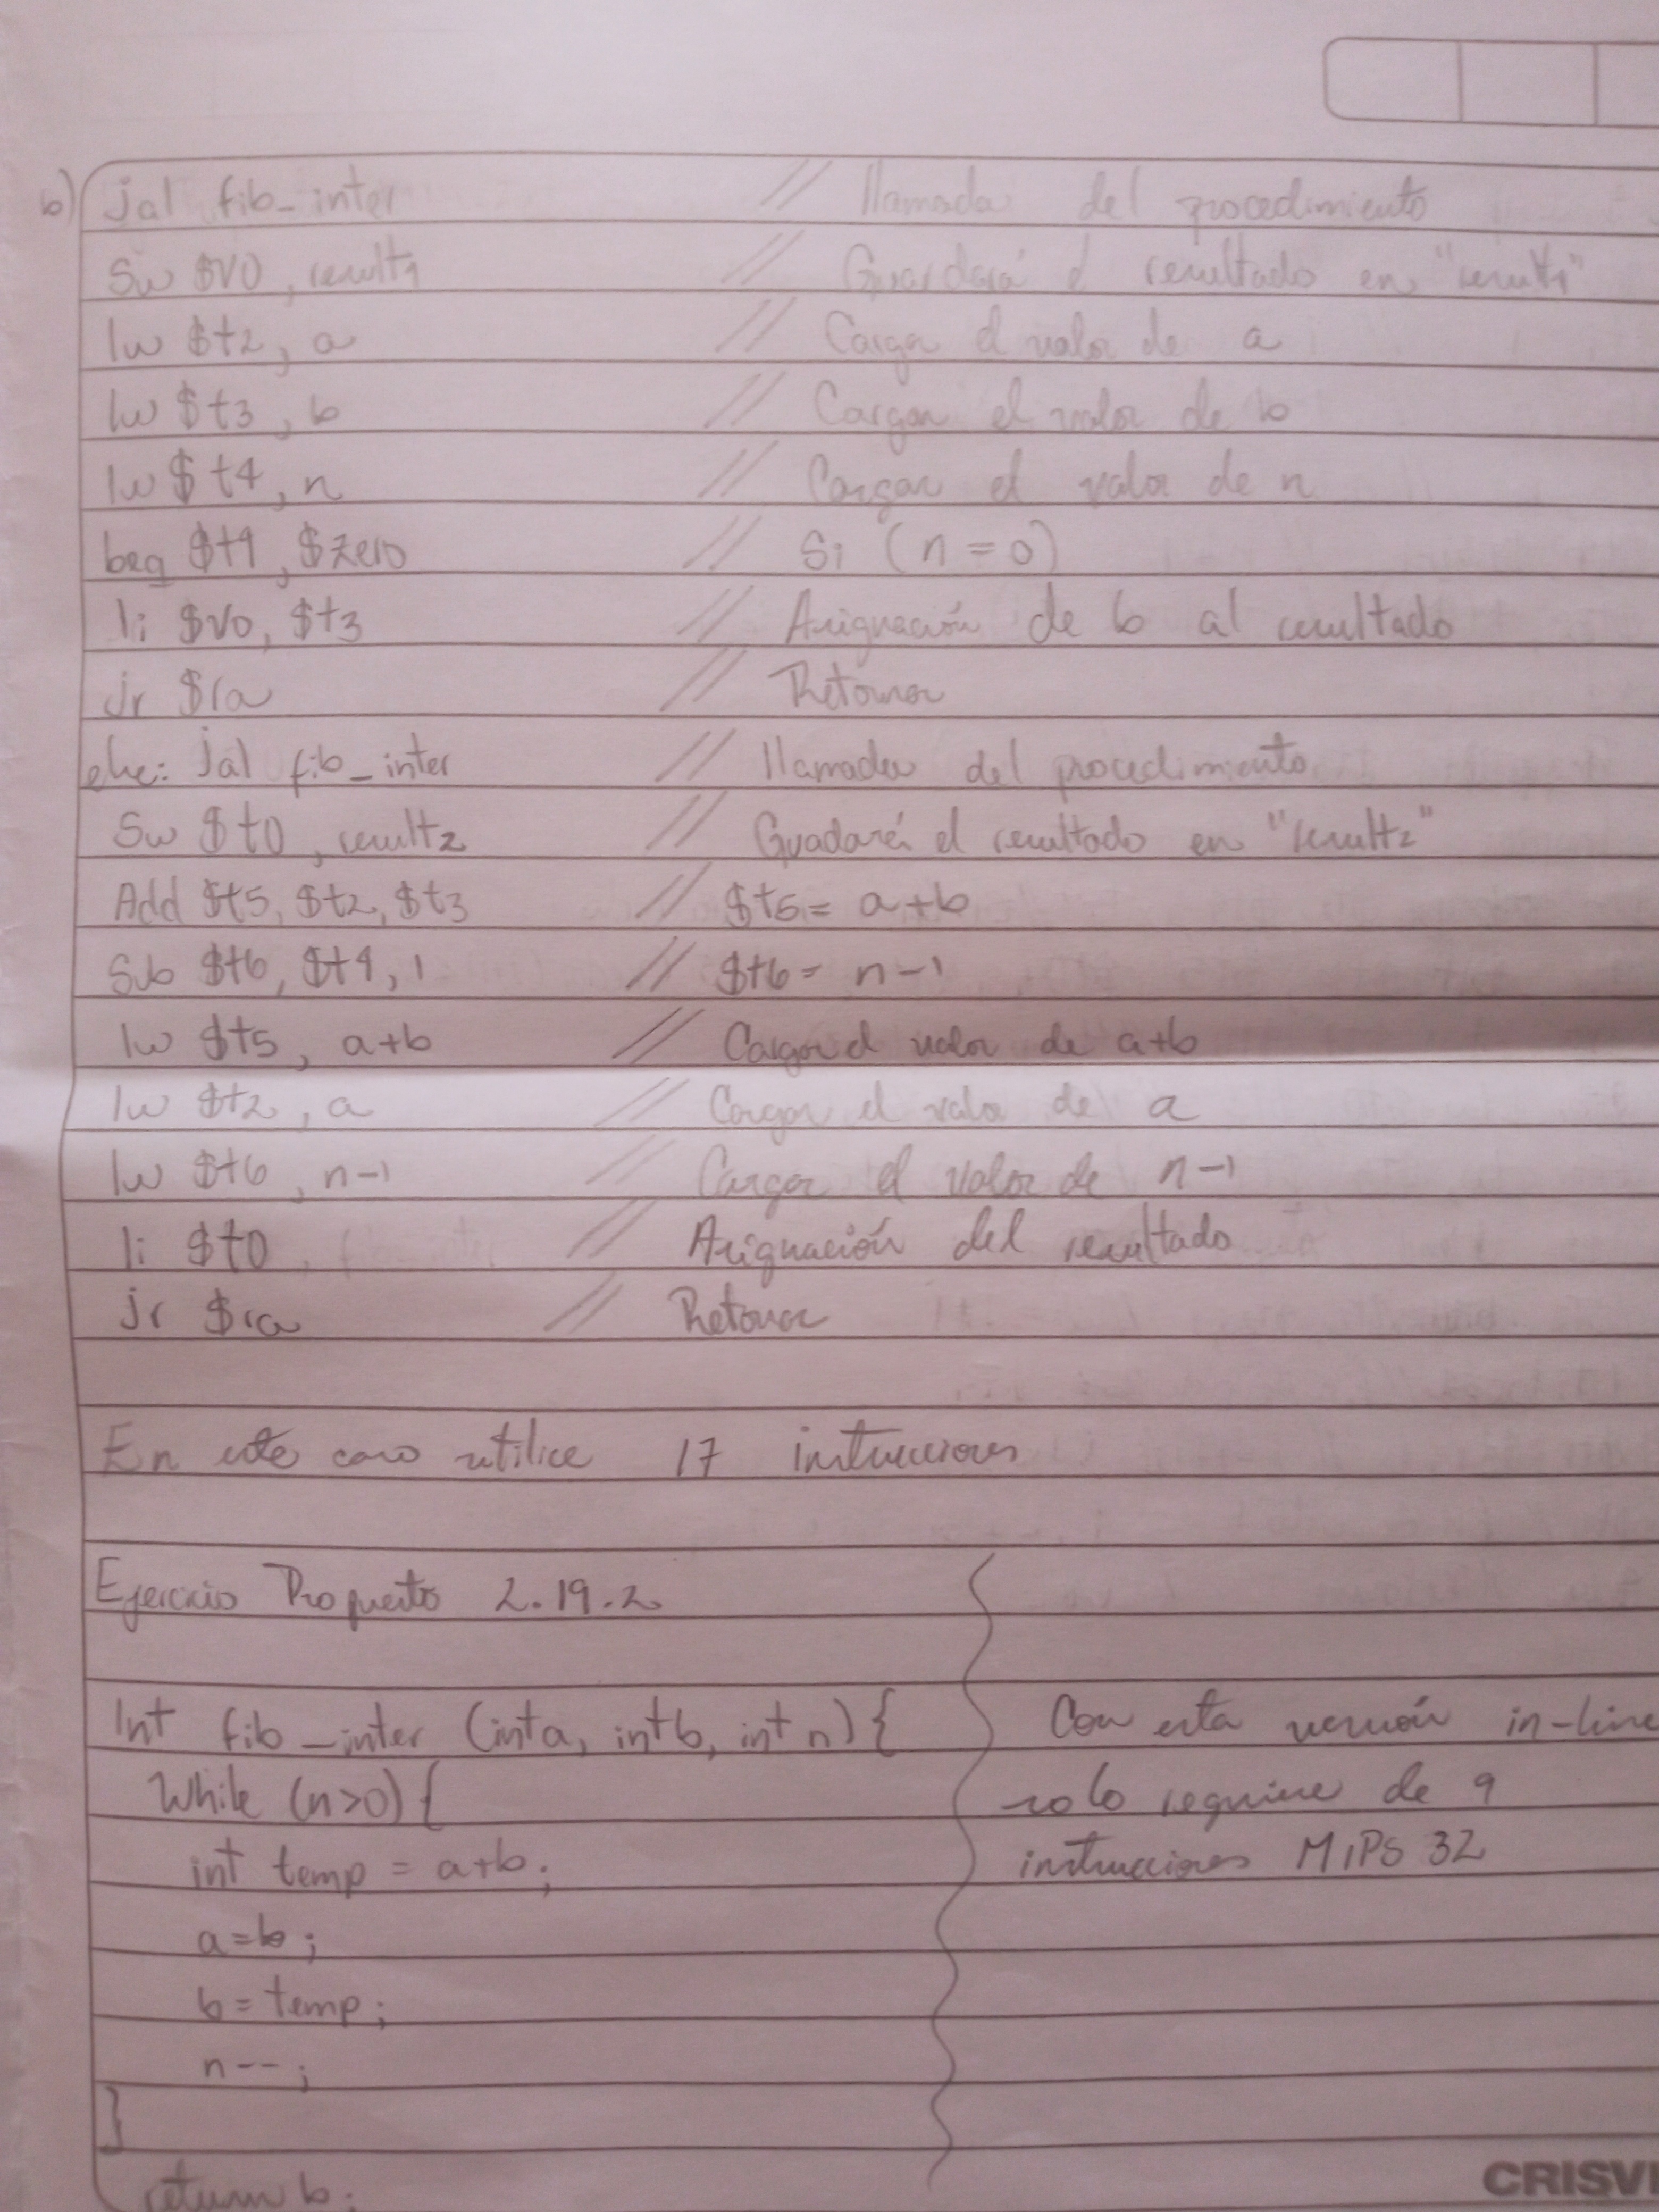 b) jal fib_inter // llamada del procedimiento
Sw $v0, result1 // Guardará el resultado en "result1"
lw $t2, a // Cargar el valor de a
lw $t3, b // Cargar el valor de b
lw $t4, n // Cargar el valor de n
beq $t4, $zero // Si (n = 0)
li $v0, $t3 // Asignación de b al resultado
jr $ra // Retornar
else: jal fib_inter // llamada del procedimiento
Sw $t0, result2 // Guadará el resultado en "result2"
Add $t5, $t2, $t3 // $t5 = a+b
Sub $t6, $t4, 1 // $t6 = n-1
lw $t5, a+b // Cargar el valor de a+b
lw $t2, a // Cargar el valor de a
lw $t6, n-1 // Cargar el valor de n-1
li $t0 // Asignación del resultado
jr $ra // Retornar
En este caso utilice 17 instrucciones
Ejercicio Propuesto 2.19.2
Int fib_inter (int a, int b, int n) {
While (n>0) {
int temp = a+b;
a=b;
b=temp;
n--;
}
return b;
Con esta versión in-line
solo requiere de 9
instrucciones MIPS 32
CRISV